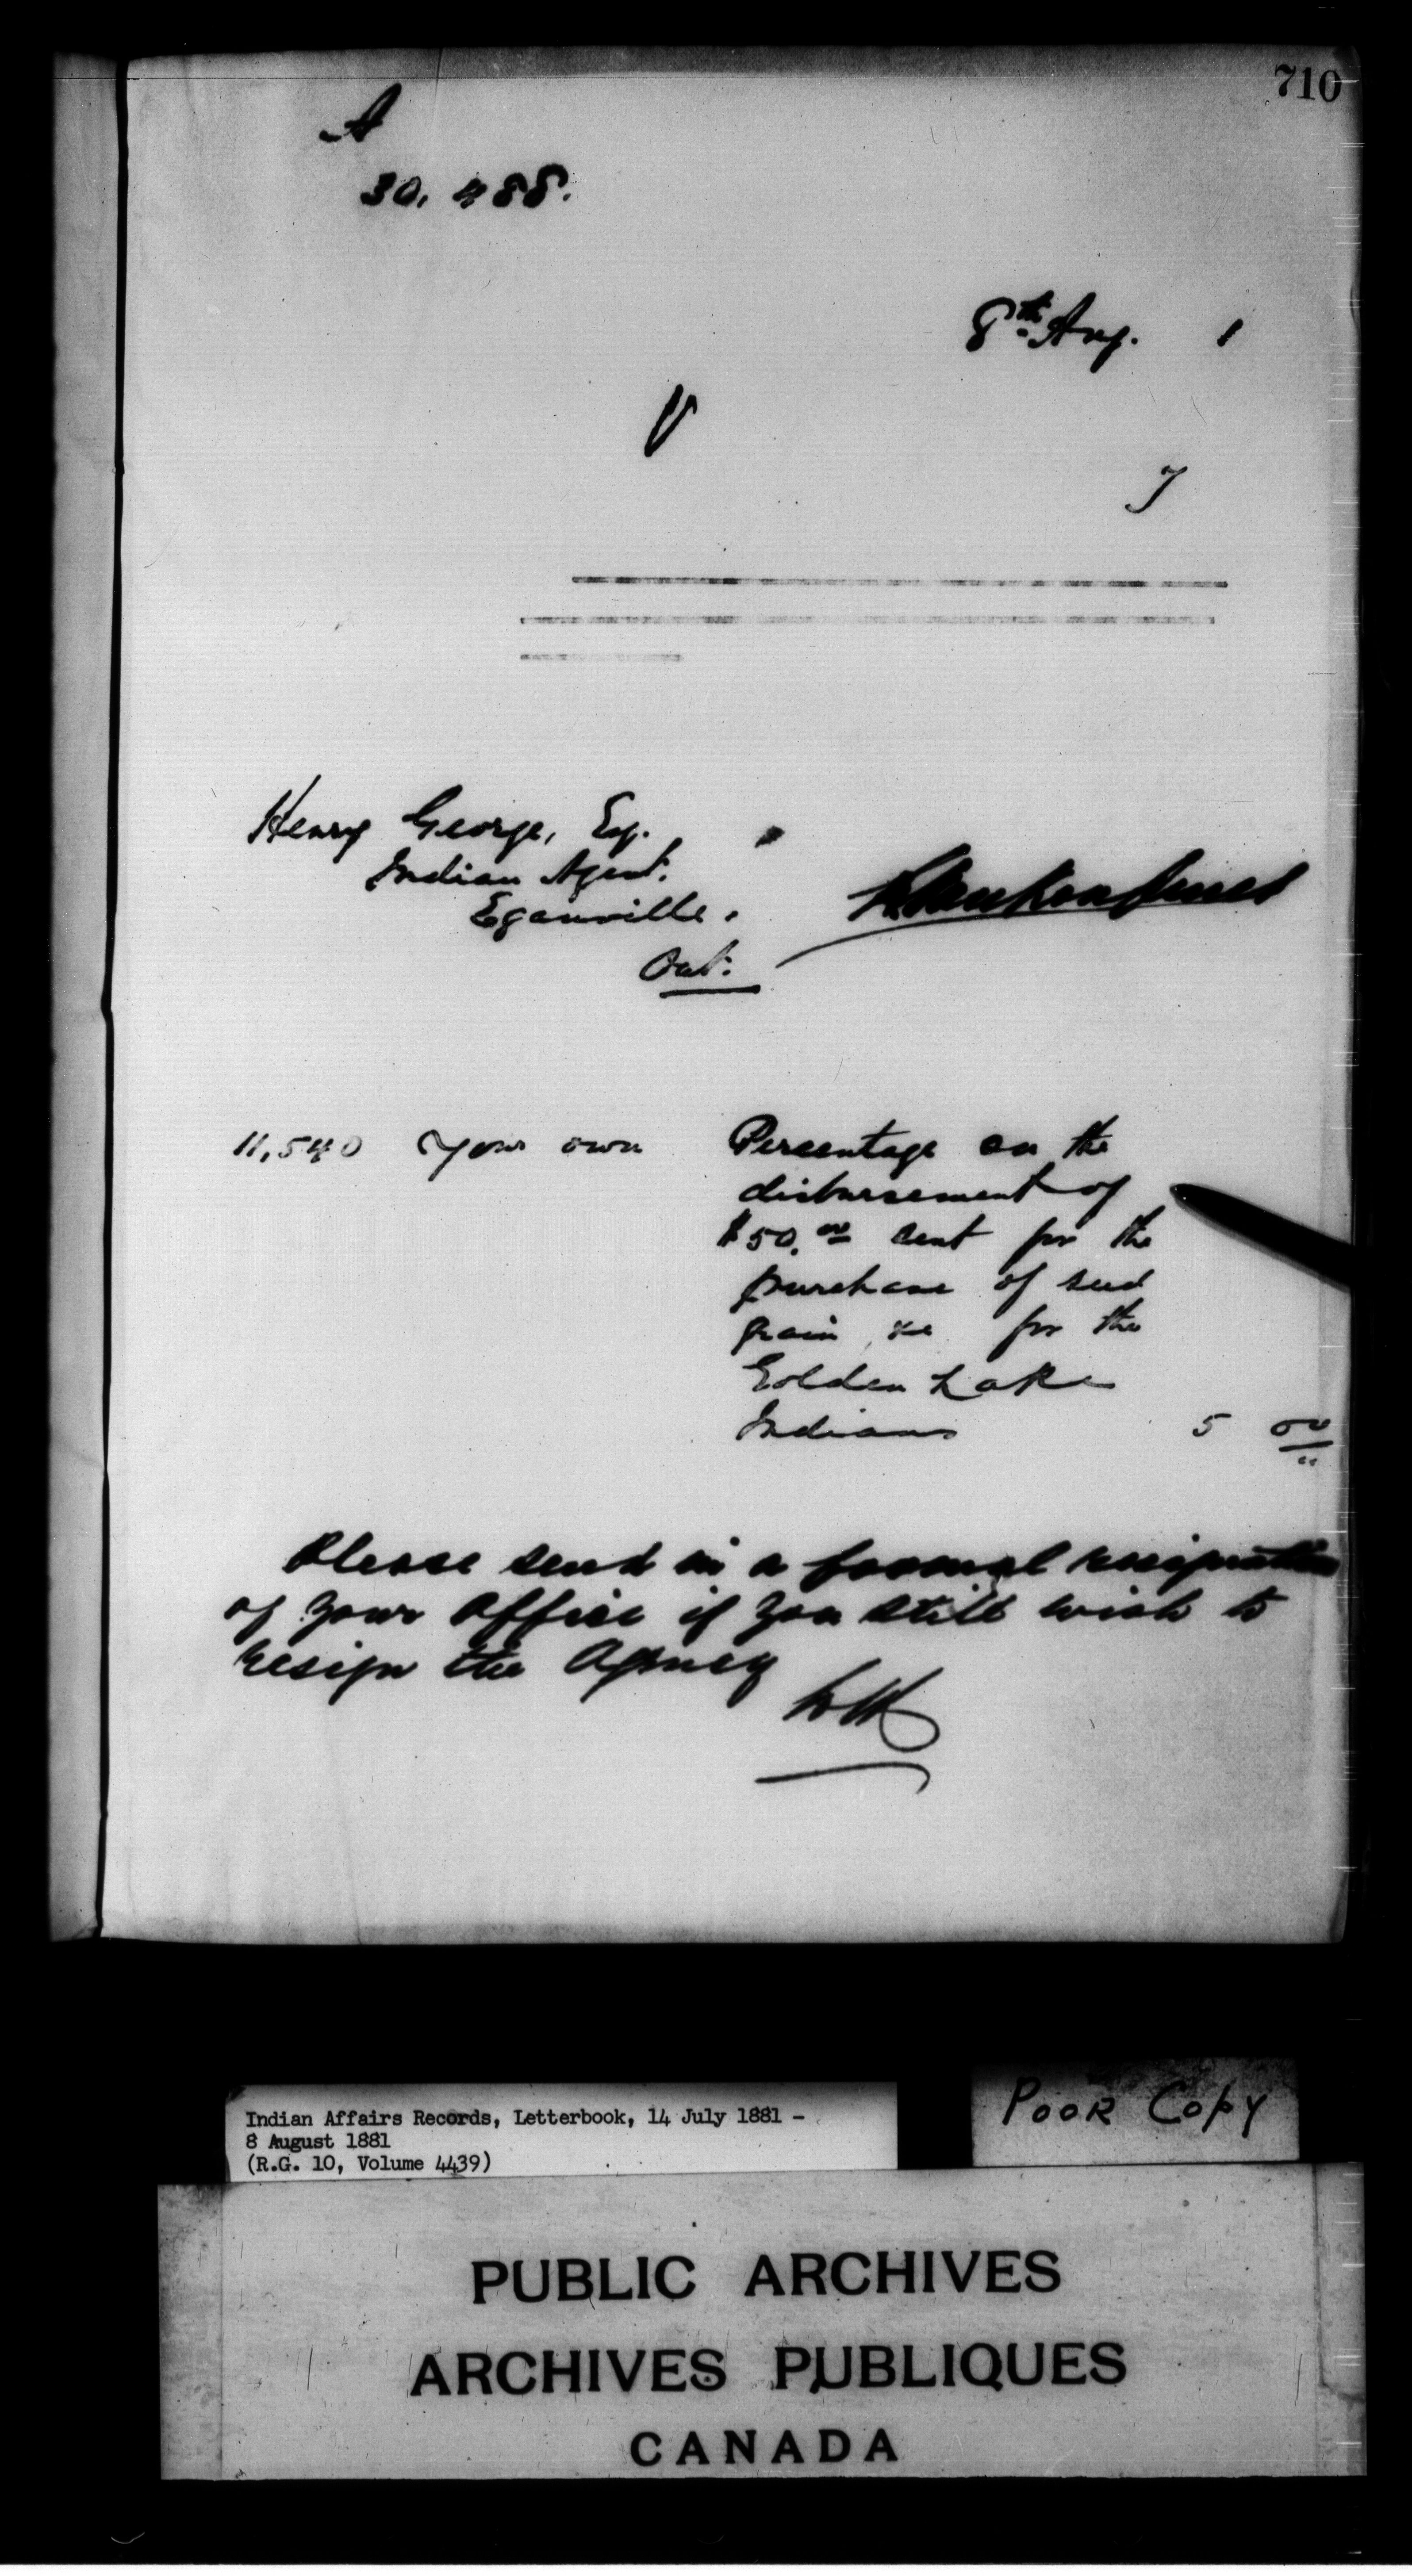 710
A
30,488.
8th Aug. 1
Henry George, Esq.
Indian Agent.
Eganville.
Ont.
11,540 Your own Percentage on the
disbursement of
$50.00 sent for the
purchase of seed
grain &c for the
Golden Lake
Indians 5 00
Please send in a formal resignation
of your office if you still wish to
resign the Agency
Indian Affairs Records, Letterbook, 14 July 1881 -
8 August 1881
(R.G. 10, Volume 4439)
POOR COPY
PUBLIC ARCHIVES
ARCHIVES PUBLIQUES
CANADA